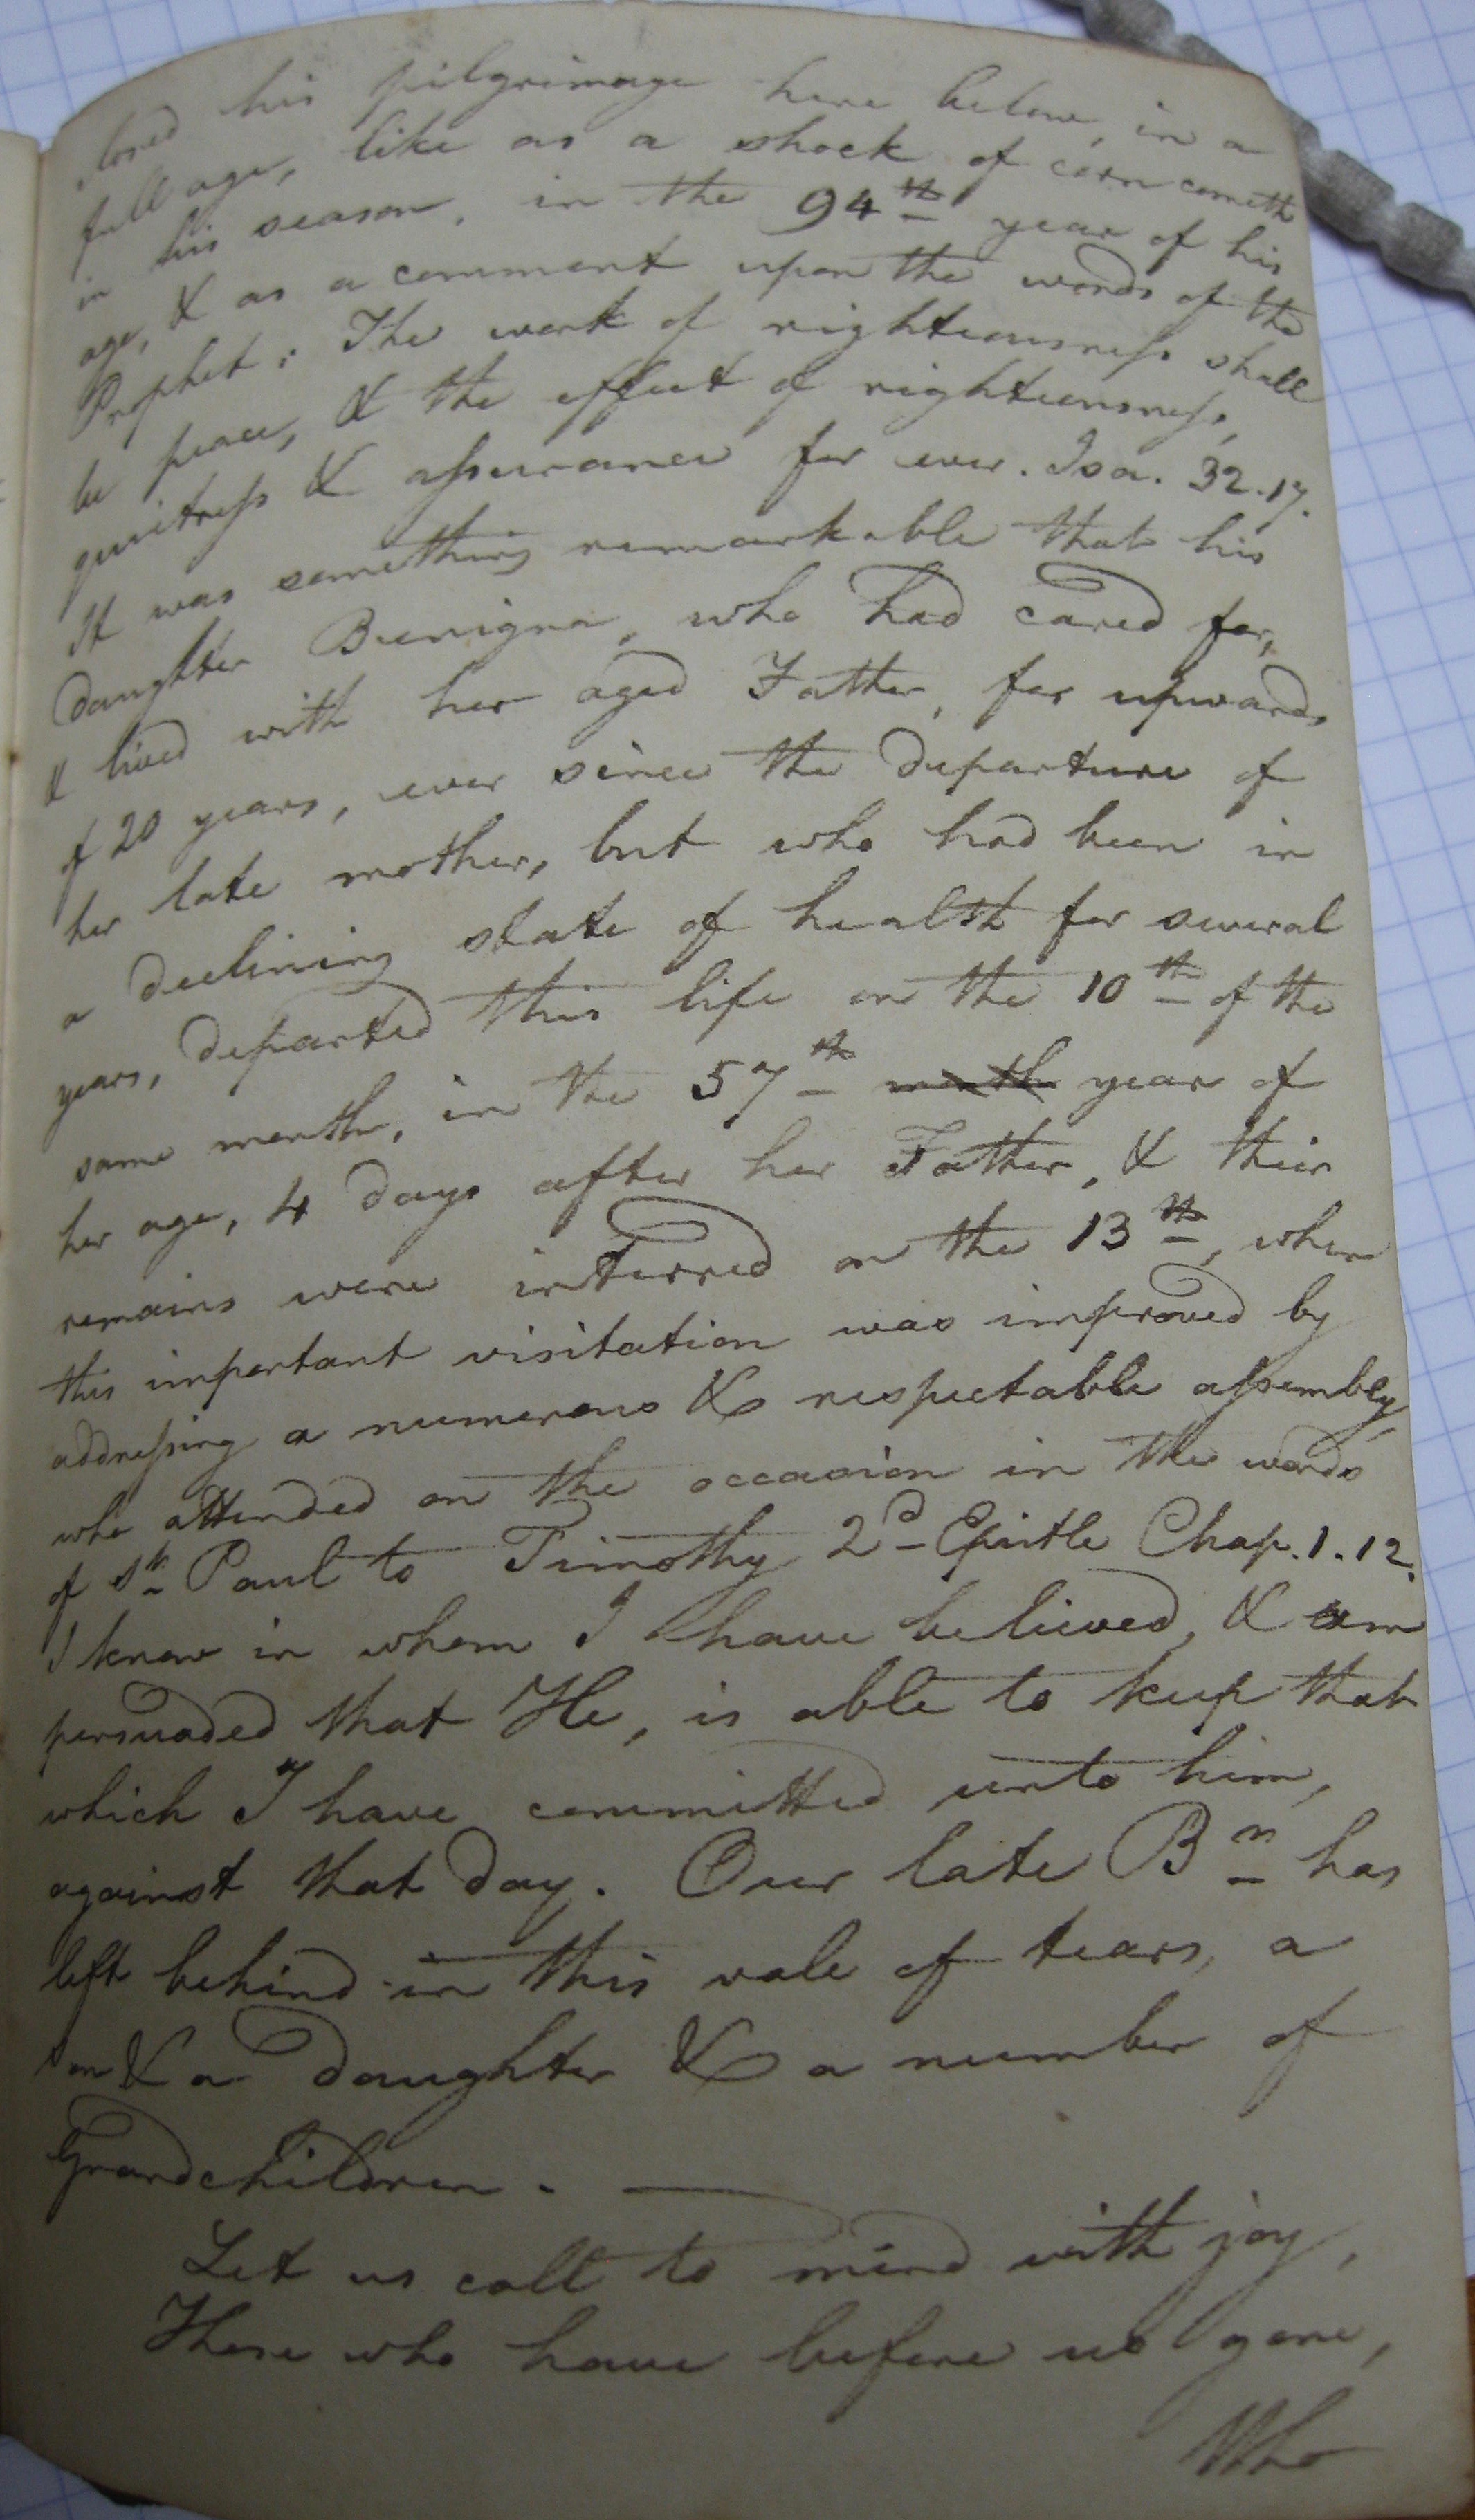 closed his pilgrimage here below, in a
full age, like as a shock of corn cometh
in his season, in the 94th year of his
age, & as a comment upon the words of the
Prophet: The work of righteousness shall
be peace, & the effect of righteousness,
quietness & assurance for ever. Isa. 32.17.
It was something remarkable that his
daughter Benigna, who had cared for,
& lived with her aged Father, for upwards
of 20 years, ever since the departure of
her late mother, but who had been in
a declining state of health for several
years, departed this life on the 10th of the
same month, in the 57th month year of
her age, 4 days after her Father, & their
remains were interred on the 13th, when
this important visitation was improved by
addressing a numerous & respectable assembly,
who attended on the occasion in the words
of St. Paul to Timothy 2d Epistle Chap. 1. 12.
I know in whom I have believed, & am
persuaded that He, is able to keep that
which I have committed unto him,
against that day. Our late Br has
left behind in this vale of tears, a
son & a daughter & a number of
Grandchildren. —
Let us call to mind with joy,
Those who have before us gone,
Who